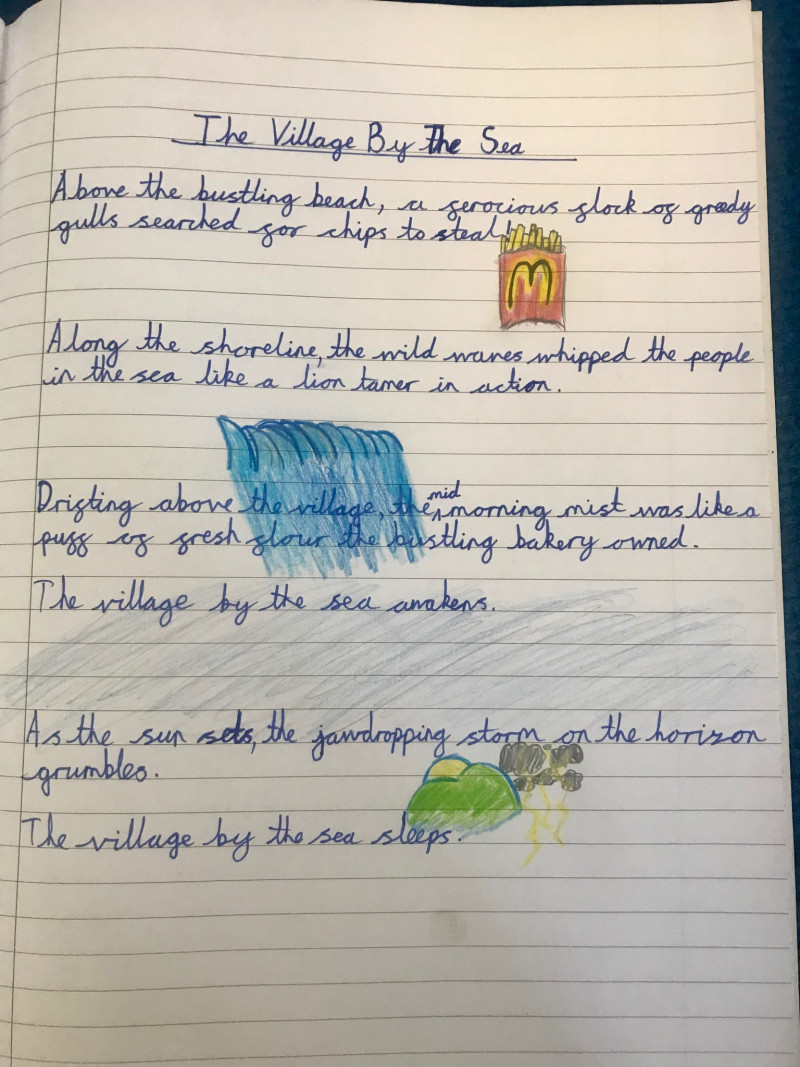 The Village By The Sea
Above the bustling beach, a ferocious flock of greedy
gulls searched for chips to steal!
M
Along the shoreline, the wild waves whipped the people
in the sea like a lion tamer in action.
Drifting above the village, the mid morning mist was like a
puff of fresh flour the bustling bakery owned.
The village by the sea awakens.
As the sun sets, the jawdropping storm on the horizon
grumbles.
The village by the sea sleeps.